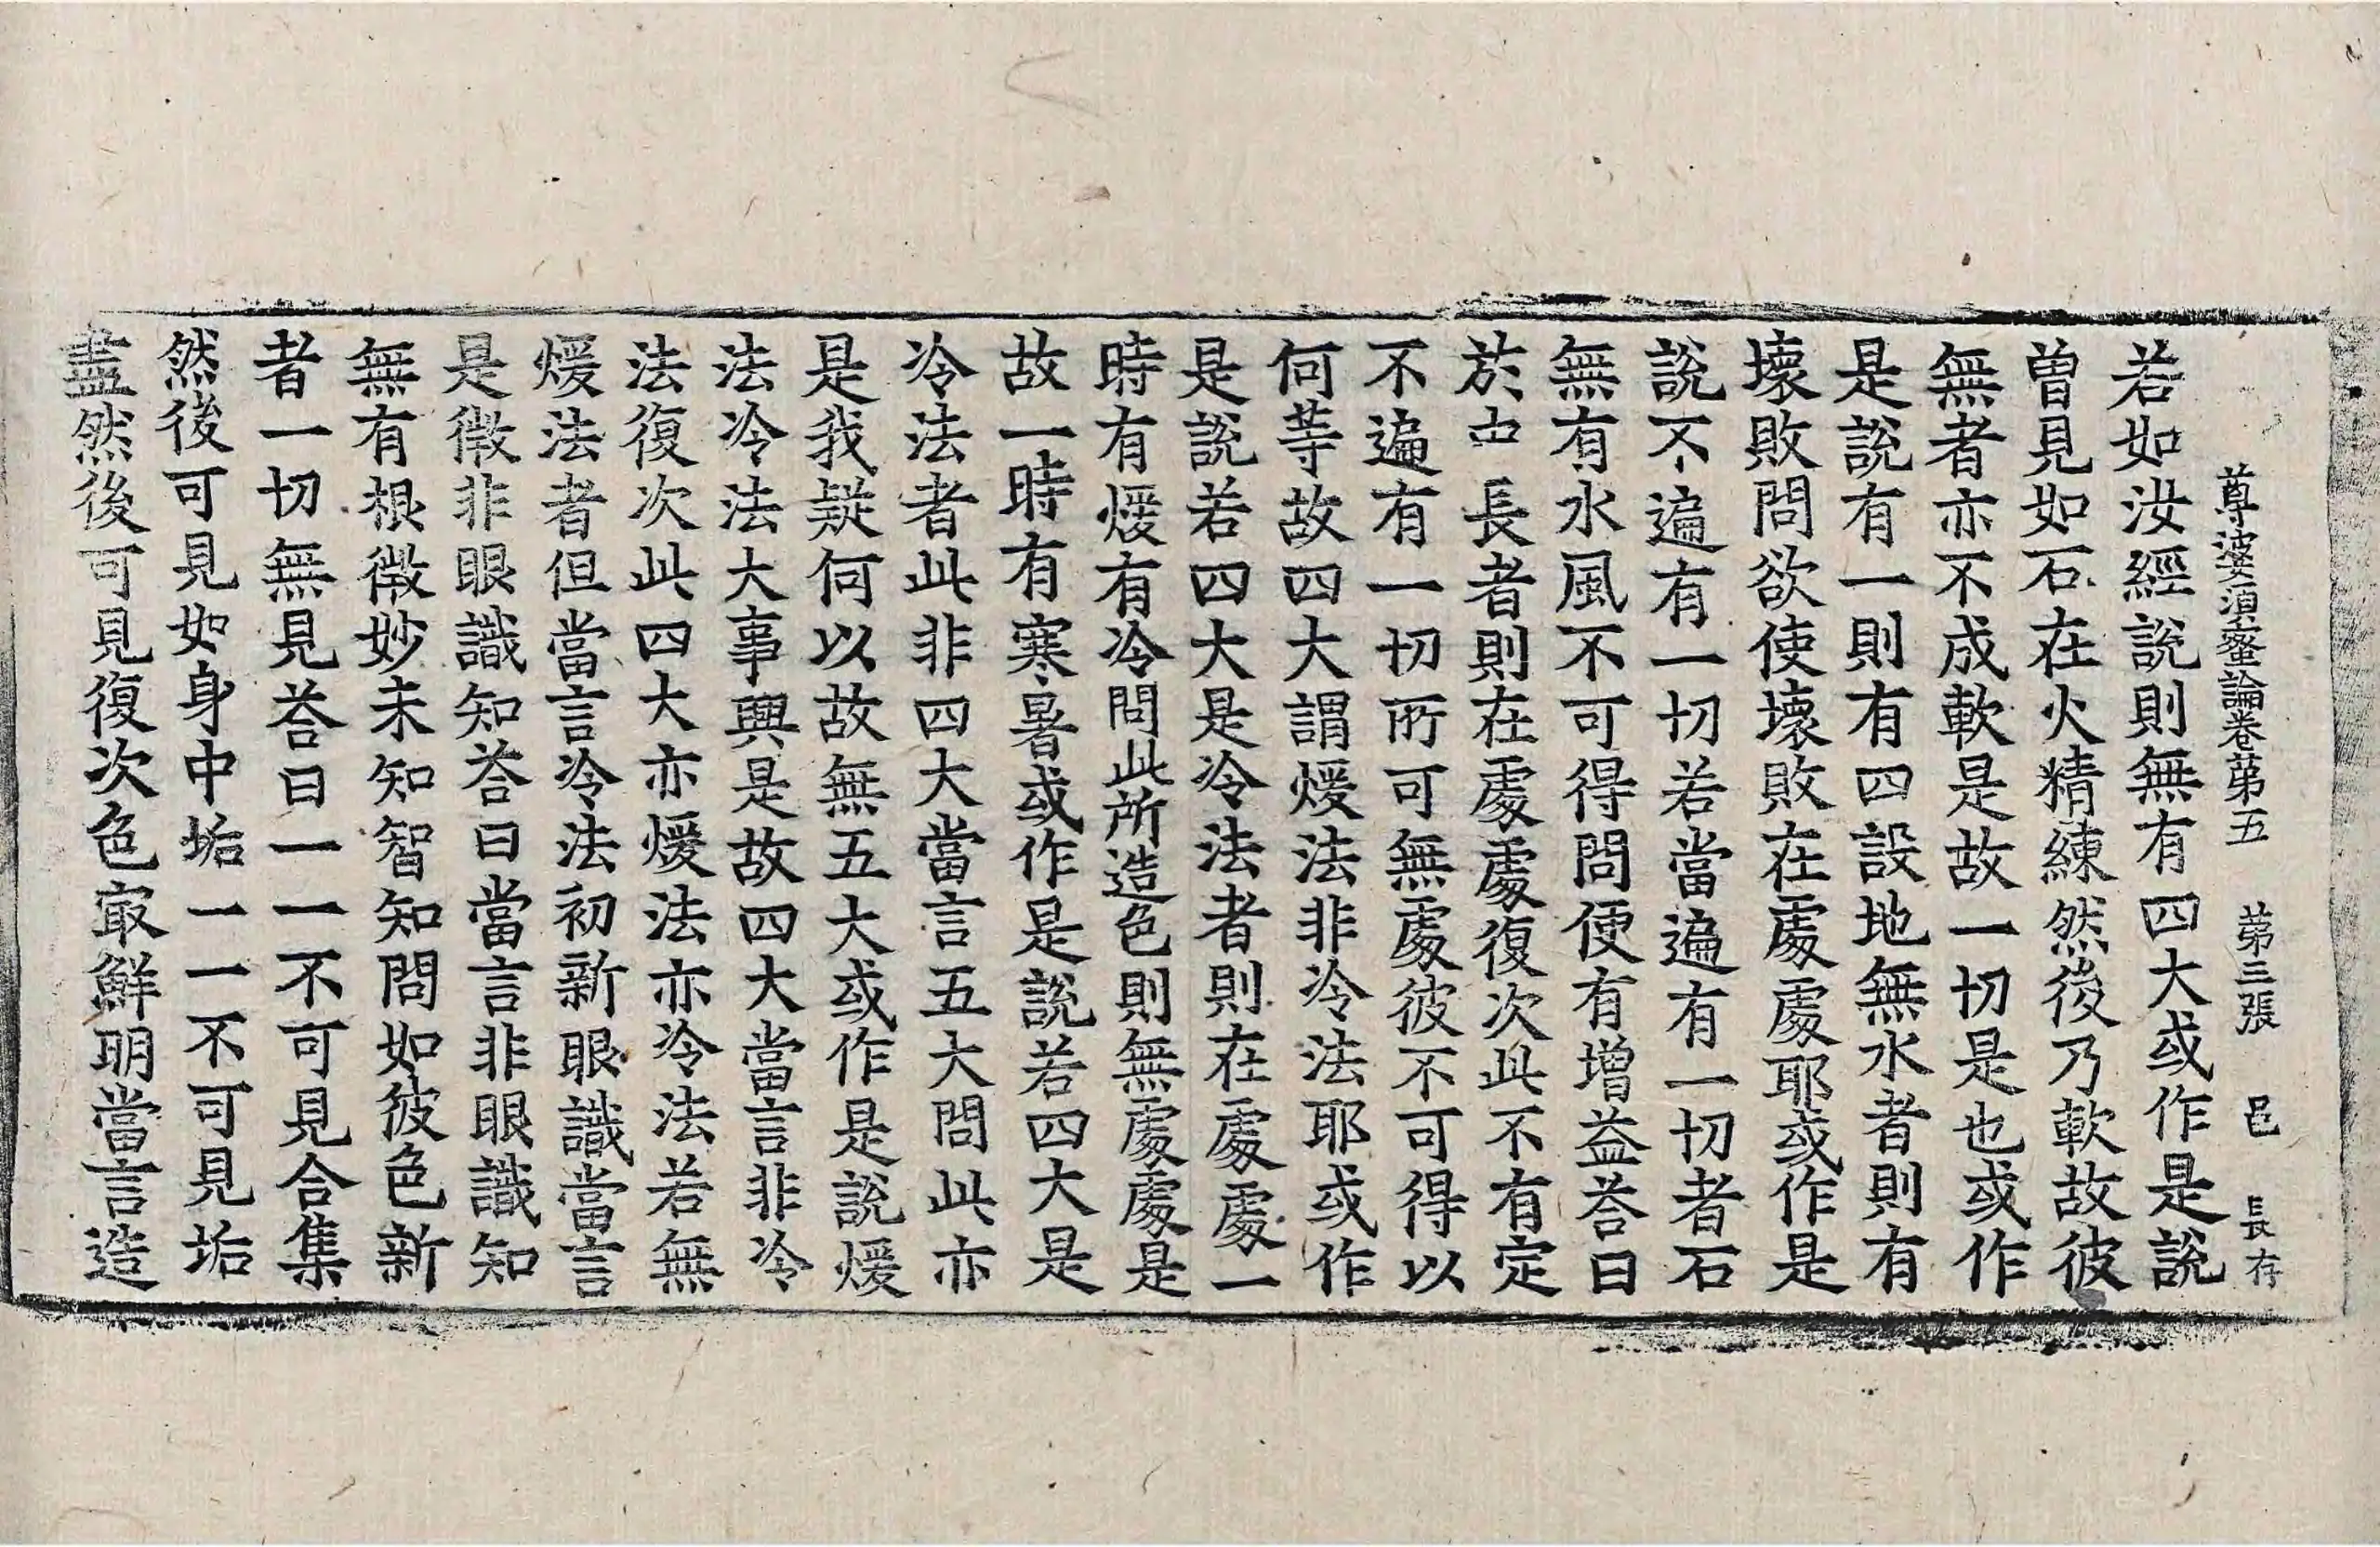 尊婆須蜜論卷第五 第三張 邑 長存
若如汝經說則無有四大或作是說
曾見如石在火精練然後乃軟故彼
無者亦不成軟是故一切是也或作
是說有一則有四設地無水者則有
壞敗問欲使壞敗在處處耶或作是
說不遍有一切若當遍有一切者石
無有水風不可得問便有增益荅曰
於中長者則在處處復次此不有定
不遍有一切所可無處彼不可得以
何等故四大謂煖法非冷法耶或作
是說若四大是冷法者則在處處一
時有煖有冷問此所造色則無處處是
故一時有寒暑或作是說若四大是
冷法者此非四大當言五大問此亦
是我疑何以故無五大或作是說煖
法冷法大事興是故四大當言非冷
法復次此四大亦煖法亦冷法若無
煖法者但當言冷法初新眼識當言
是微非眼識知荅曰當言非眼識知
無有根微妙未知智知問如彼色新
者一切無見荅曰一一不可見合集
然後可見如身中垢一一不可見垢
盡然後可見復次色㝡鮮明當言造